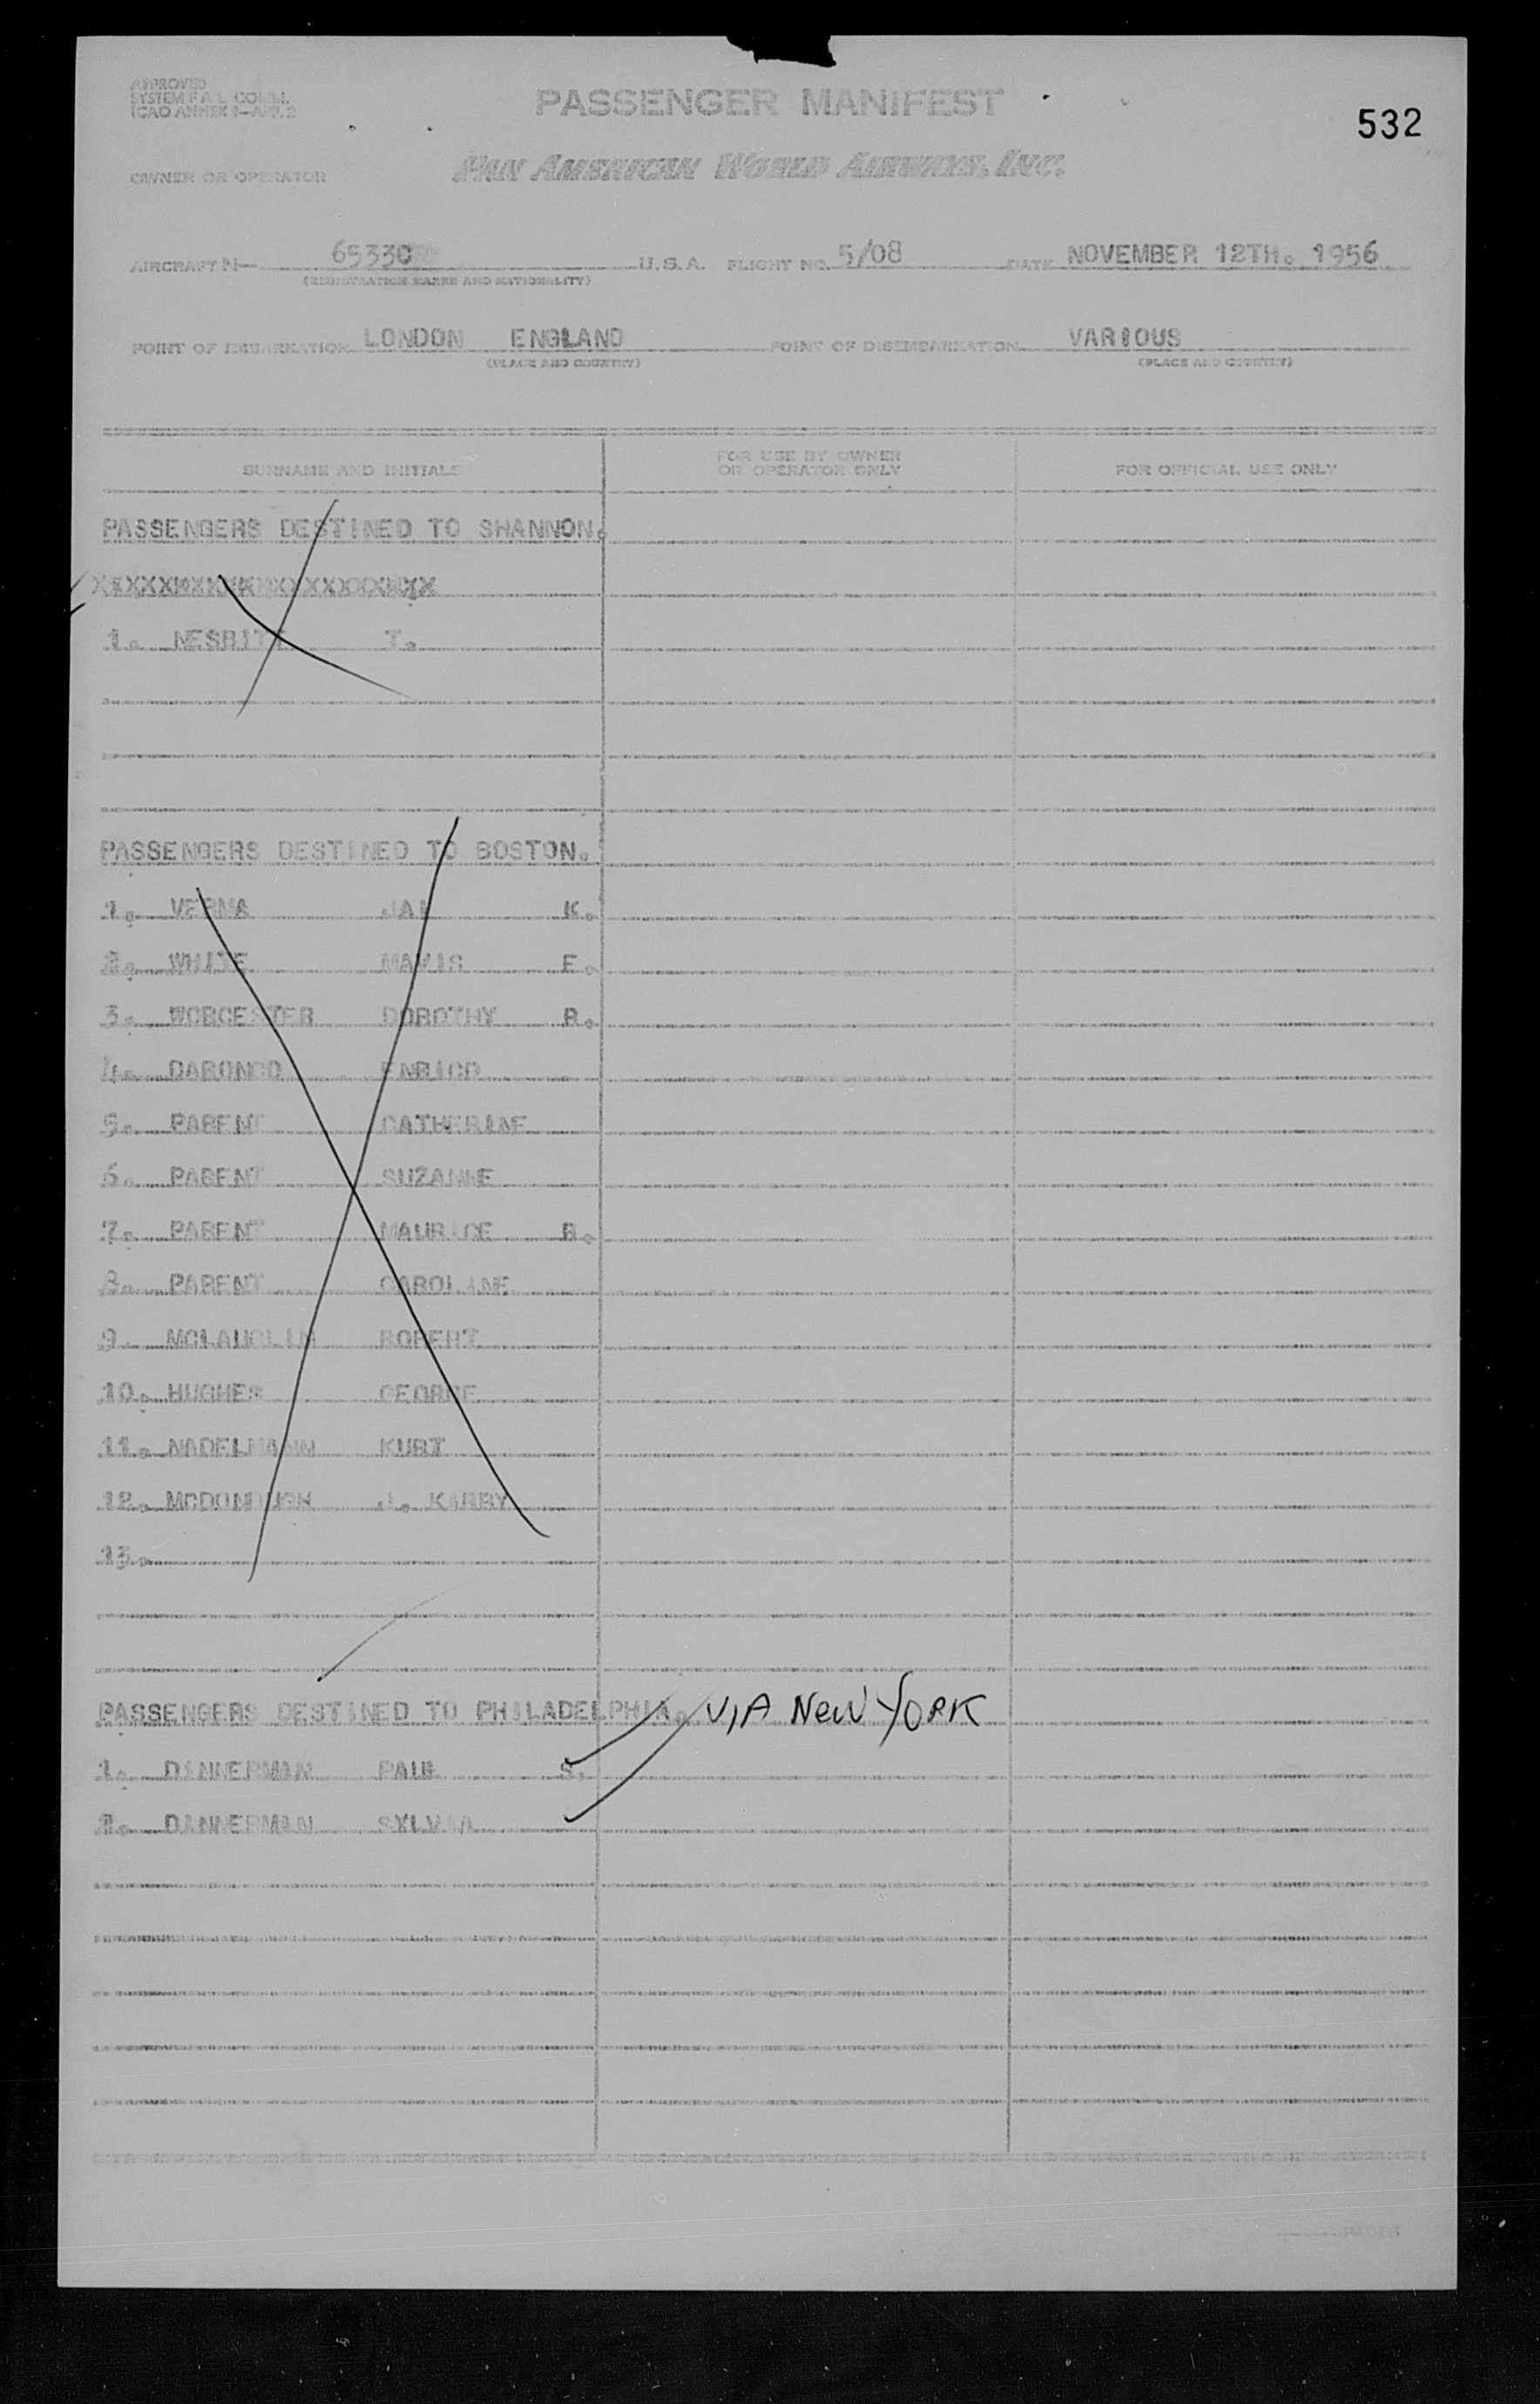 APPROVED
SYSTEM F A L COMM.
ICAO ANNEX 9-APP. 2
PASSENGER MANIFEST
532
OWNER OR OPERATOR
PAN AMERICAN WORLD AIRWAYS, INC.
AIRCRAFT N- 65330 U.S.A. FLIGHT NO. 5/08 DATE NOVEMBER 12TH. 1956
(REGISTRATION MARKS AND NATIONALITY)
POINT OF EMBARKATION LONDON ENGLAND POINT OF DISEMBARKATION VARIOUS
(PLACE AND COUNTRY) (PLACE AND COUNTRY)
SURNAME AND INITIALS FOR USE BY OWNER OR OPERATOR ONLY FOR OFFICIAL USE ONLY
PASSENGERS DESTINED TO SHANNON.
1. NESBITT T.
PASSENGERS DESTINED TO BOSTON.
1. VERMA JAI K.
2. WHITE MAVIS E.
3. WORCESTER DOROTHY R.
4. ENRICO
5. PARENT CATHERINE
6. PARENT SUZANNE
7. PARENT MAURICE
8. PARENT CAROLINE
9. MCLAUGLIN ROBERT
10. HUGHES GEORGE
11. NADELMANN KURT
12. MCDONOUGH J. KARRY
13.
PASSENGERS DESTINED TO PHILADELPHIA. VIA NEW YORK
1. DANNERMAN PAUL S.
2. DANNERMAN SYLVIA